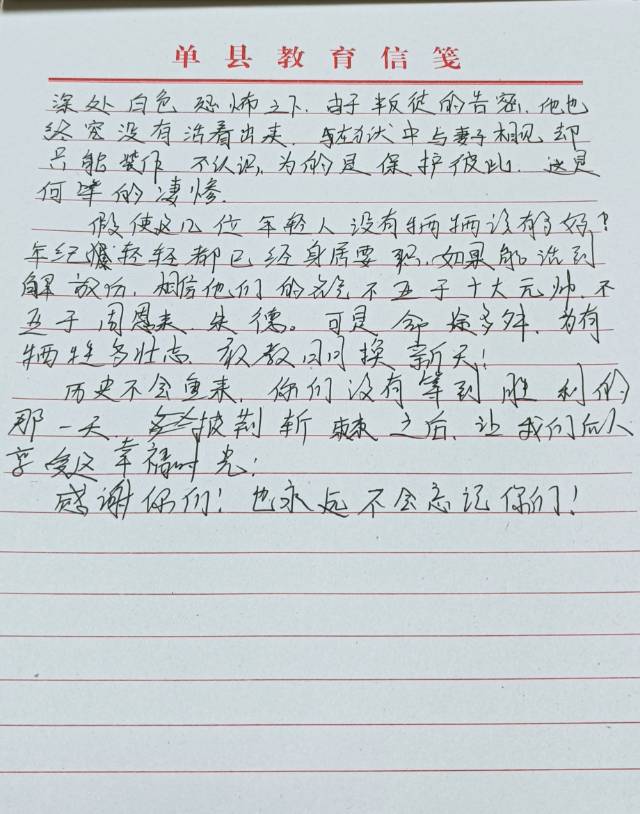 单县教育信笺
深处白色恐怖之下，由于叛徒的告密，他也
终究没有活着出来，与在狱中与妻子相见却
只能装作不认识，为的是保护彼此，这是
何等的凄惨。
假使这几位年轻人没有牺牲该有多好？
年纪轻轻都已经身居要职，如果能活到
解放后，相信他们的名气不亚于十大元帅，不
亚于周恩来、朱德。可是命途多舛，为有
牺牲多壮志，敢教日月换新天！
历史不会重来，你们没有等到胜利的
那一天，披荆斩棘之后，让我们后人
享受这幸福时光！
感谢你们！也永远不会忘记你们！